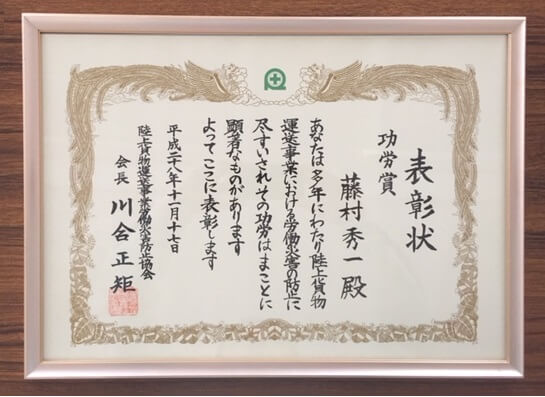 表彰状
功労賞
藤村秀一殿
あなたは多年にわたり陸上貨物
運送事業における労働災害の防止に
尽すいされその功労はまことに
顕著なものがあります
よってここに表彰します
平成二十八年十一月十七日
陸上貨物運送事業労働災害防止協会
会長 川合正矩